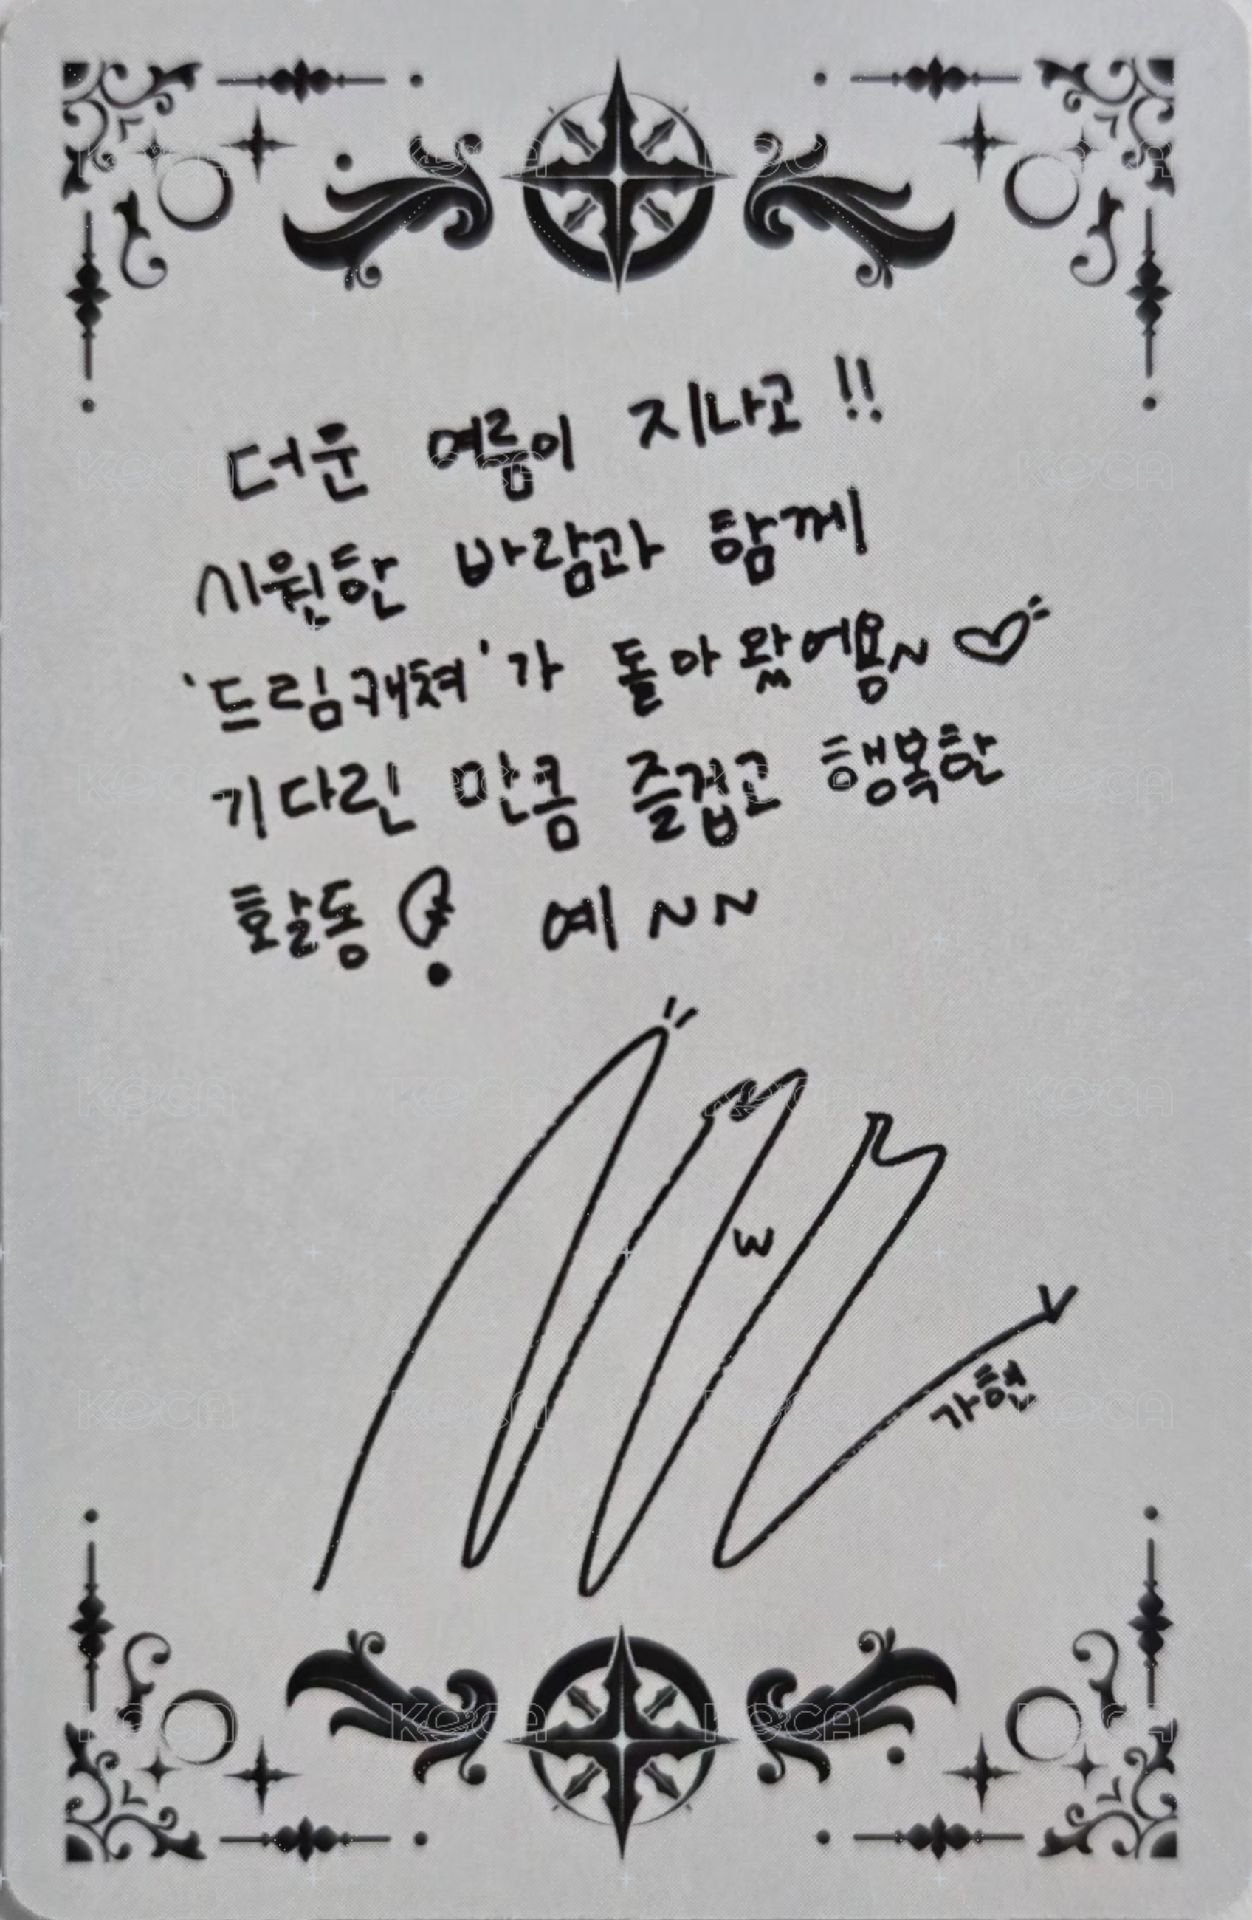 더운 여름이 지나고!!
시원한 바람과 함께
'드림캐쳐'가 돌아왔어용~♡
기다린 만큼 즐겁고 행복한
활동! 예~~
w
가현
KOCA